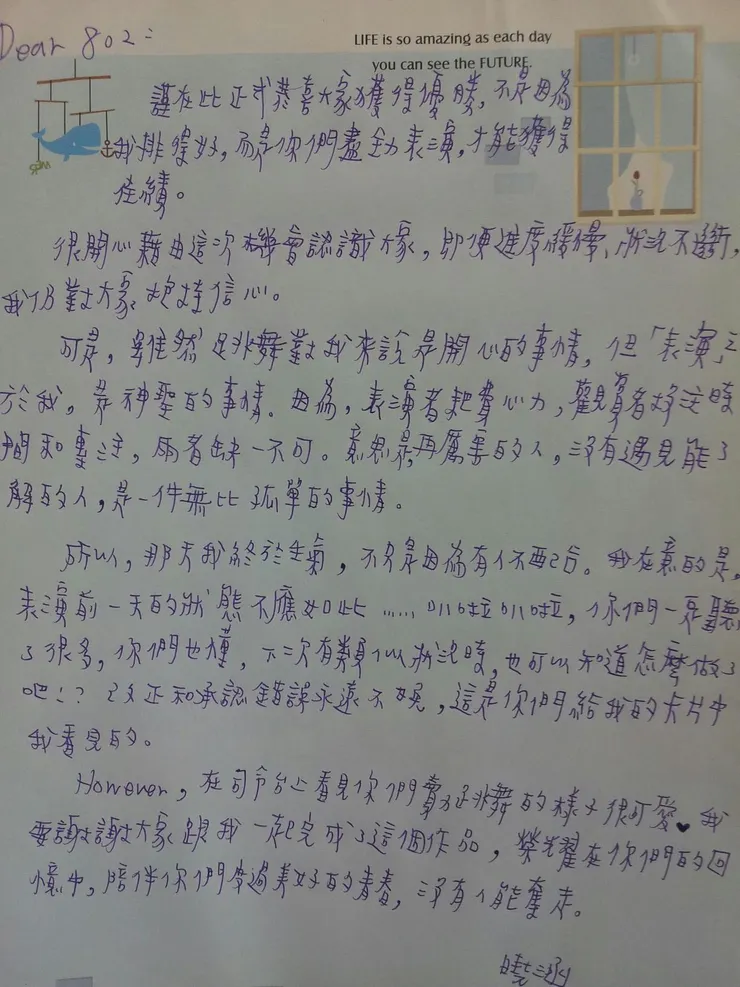 Dear 802：
LIFE is so amazing as each day
you can see the FUTURE.
謹在此正式恭喜大家獲得優勝，不是因為
我排得好，而是你們盡全力表演，才能獲得
佳績。
很開心藉由這次機會認識大家，即便進度緩慢、狀況不斷，
我仍對大家抱持信心。
可是，雖然足非舞對我來說是開心的事情，但「表演」之
於我，是神聖的事情。因為，表演者耗費心力，觀賞者挹注時
間和專注，兩者缺一不可。意思是，再厲害的人，沒有遇見能了
解的人，是一件無比孤單的事情。
所以，那天我終於生氣，不只是因為有人不配合。我在意的是，
表演前一天的狀態不應如此……叭啦叭啦，你們一定聽
了很多，你們也懂，下次有類似狀況時，也可以知道怎麼做了
吧！？改正和承認錯誤永遠不晚，這是你們給我的卡片中
我看見的。
However，在司令台上看見你們賣力足非舞的樣子很可愛♥我
要謝謝大家跟我一起完成了這個作品，榮耀在你們的回
憶中，陪伴你們度過美好的青春，沒有人能奪走。
曉涵